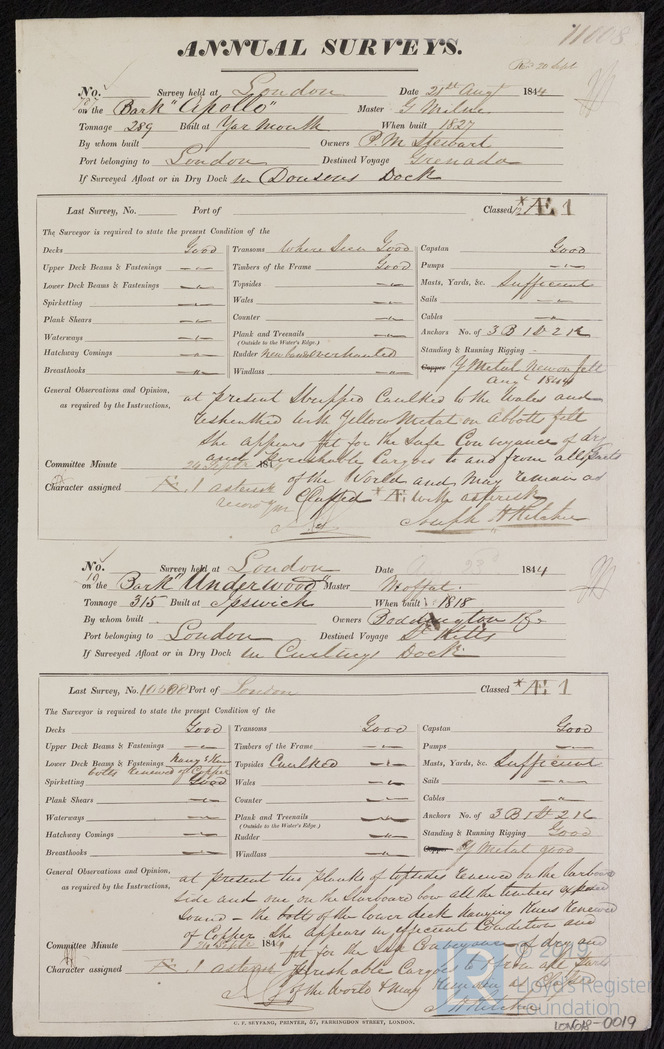 11008
ANNUAL SURVEYS.
Rec 20 Sept
No. Survey held at London Date 21st Augt 1844
787 on the Bark "Apollo" Master G Milne
Tonnage 289 Built at Yarmouth When built 1827
By whom built Owners P. M Stewart
Port belonging to London Destined Voyage Grenada
If Surveyed Afloat or in Dry Dock in Dowsons Dock
Last Survey, No. Port of Classed * Æ 1
The Surveyor is required to state the present Condition of the
Decks Good Transoms Where Seen Good Capstan Good
Upper Deck Beams & Fastenings Timbers of the Frame Good Pumps
Lower Deck Beams & Fastenings Topsides Masts, Yards, &c. Sufficient
Spirketting Wales Sails
Plank Shears Counter Cables
Waterways Plank and Treenails (Outside to the Water's Edge.) Anchors No. of 3 B 1 St 2 K
Hatchway Comings Rudder New Overhauled Standing & Running Rigging
Breasthooks Windlass Copper Y Metal New on felt
Augt 1844
General Observations and Opinion, as required by the Instructions, at present Stripped Caulked to the Wales and
resheathed with Yellow Metal on Abbotts felt
She appears fit for the Safe Conveyance of dry
and perishable Cargoes to and from all Parts
of the World and may remain as
Classed * Æ 1 with asterisk
Committee Minute 24 Septr 184
Character assigned Æ 1 asterisk
Joseph H Ritchie
No. Survey held at London Date 1844
10 on the Bark "Underwood" Master Moffat
Tonnage 315 Built at Ipswich When built 1818
By whom built Owners Boddington & Co
Port belonging to London Destined Voyage St Kitts
If Surveyed Afloat or in Dry Dock in Curlings Dock
Last Survey, No. 10608 Port of London Classed * Æ 1
The Surveyor is required to state the present Condition of the
Decks Good Transoms Good Capstan Good
Upper Deck Beams & Fastenings Timbers of the Frame Pumps
Lower Deck Beams & Fastenings Hang & Knee bolts renewed of Copper Topsides Caulked Masts, Yards, &c. Sufficient
Spirketting Good Wales Sails
Plank Shears Counter Cables
Waterways Plank and Treenails (Outside to the Water's Edge.) Anchors No. of 3 B 1 St 2 K
Hatchway Comings Rudder Standing & Running Rigging Good
Breasthooks Windlass Copper Y Metal good
General Observations and Opinion, as required by the Instructions, at present two planks of topsides renewed on the larboard
side and one on the Starboard bow all the timbers exposed
Sound - the bolts of the lower deck Hanging Knees renewed
of Copper She appears in efficient Condition and
fit for the Safe Conveyance of dry and
perishable Cargoes to & from all Parts
of the World & may remain as Classed
Committee Minute 24 Septr 184
Character assigned Æ 1 asterisk
J H Ritchie
C. F. SEYFANG, PRINTER, 57, FARRINGDON STREET, LONDON.
© 2019
Lloyd's Register
Foundation
LON018-0019